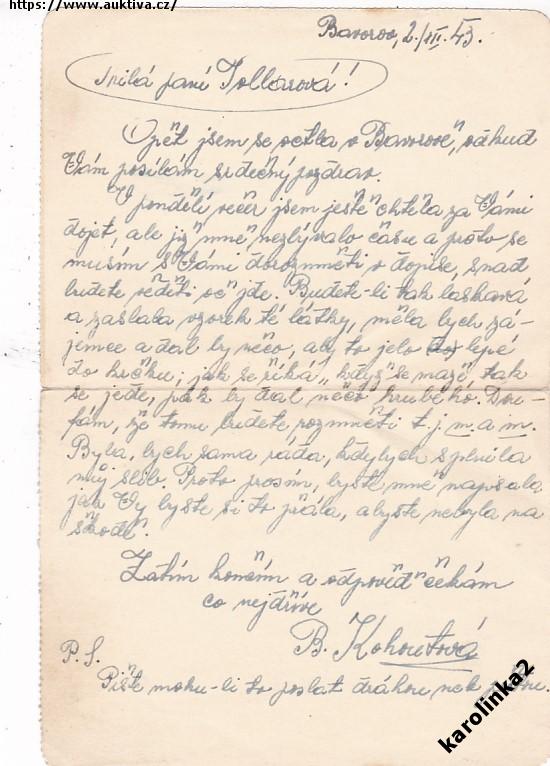 https://www.auktiva.cz/
Bavorov, 2./III. 43.
Milá paní Tollarová!
Opět jsem se octla v Bavorově, odkud
Vám posílám srdečný pozdrav.
V pondělí večer jsem ještě chtěla za Vámi
dojet, ale již mně nezbývalo času a proto se
musím s Vámi dorozuměti v dopise, snad
budete věděti oč jde. Budete-li tak laskavá
a zaslala vzorek té látky, měla bych zá-
jemce a dal by něco, aby to jelo lépe
do kočku, jak se říká „když se maže, tak
se jede, pak by dal něco hrubého. Dou-
fám, že tomu budete rozuměti t. j. m. a m.
Byla bych sama ráda, kdybych splnila
můj slib. Proto prosím, byste mně napsala
jak Vy byste si to přála, abyste nebyla na
škodě.
Zatím končím a odpověď čekám
co nejdříve
B. Kohoutová
P. S.
Pište mohu-li to poslat dráhou nek
karolinka2